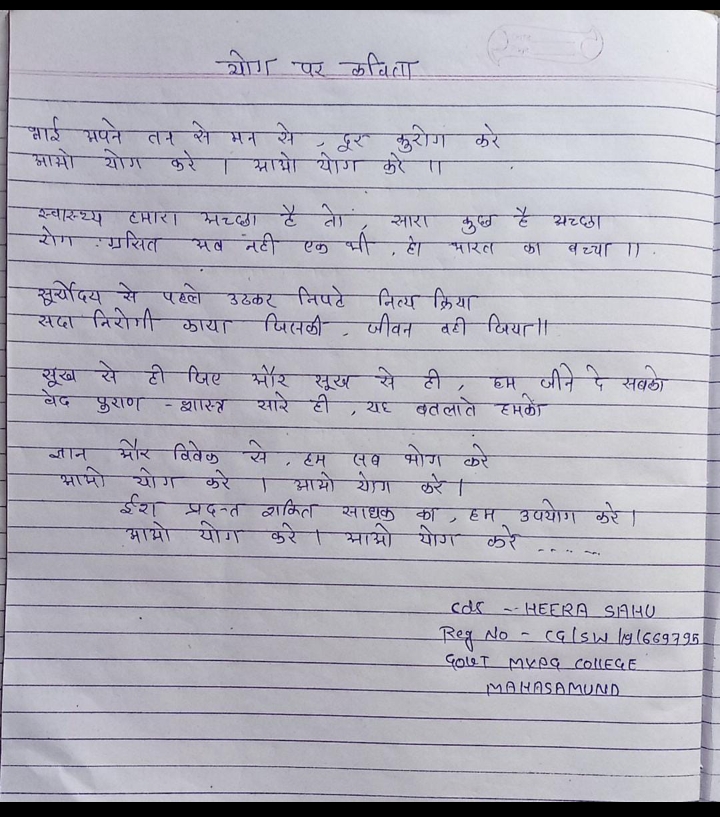 योग पर कविता
भाई अपने तन से मन से, दूर कुरोग करे
आओ योग करे । आओ योग करे ॥
स्वास्थ्य हमारा अच्छा है तो, सारा कुछ है अच्छा
रोग ग्रसित अब नही एक भी, हो भारत का बच्चा ॥
सूर्योदय से पहले उठकर निपटे नित्य क्रिया
सदा निरोगी काया जिसकी, जीवन वही जिया॥
सूख से ही जिए और सूख से ही, हम जीने दे सबको
वेद पुराण - शास्त्र सारे ही, यह बतलाते हमको
ज्ञान और विवेक से, हम सब भोग करे
आओ योग करे । आओ योग करे ।
ईश प्रदन्त शक्ति साधक का, हम उपयोग करे ।
आओ योग करे । आओ योग करे .....
Cdt - HEERA SAHU
Reg No - CG/SW/19/669795
GOVT MVPG COllEGE
MAHASAMUND